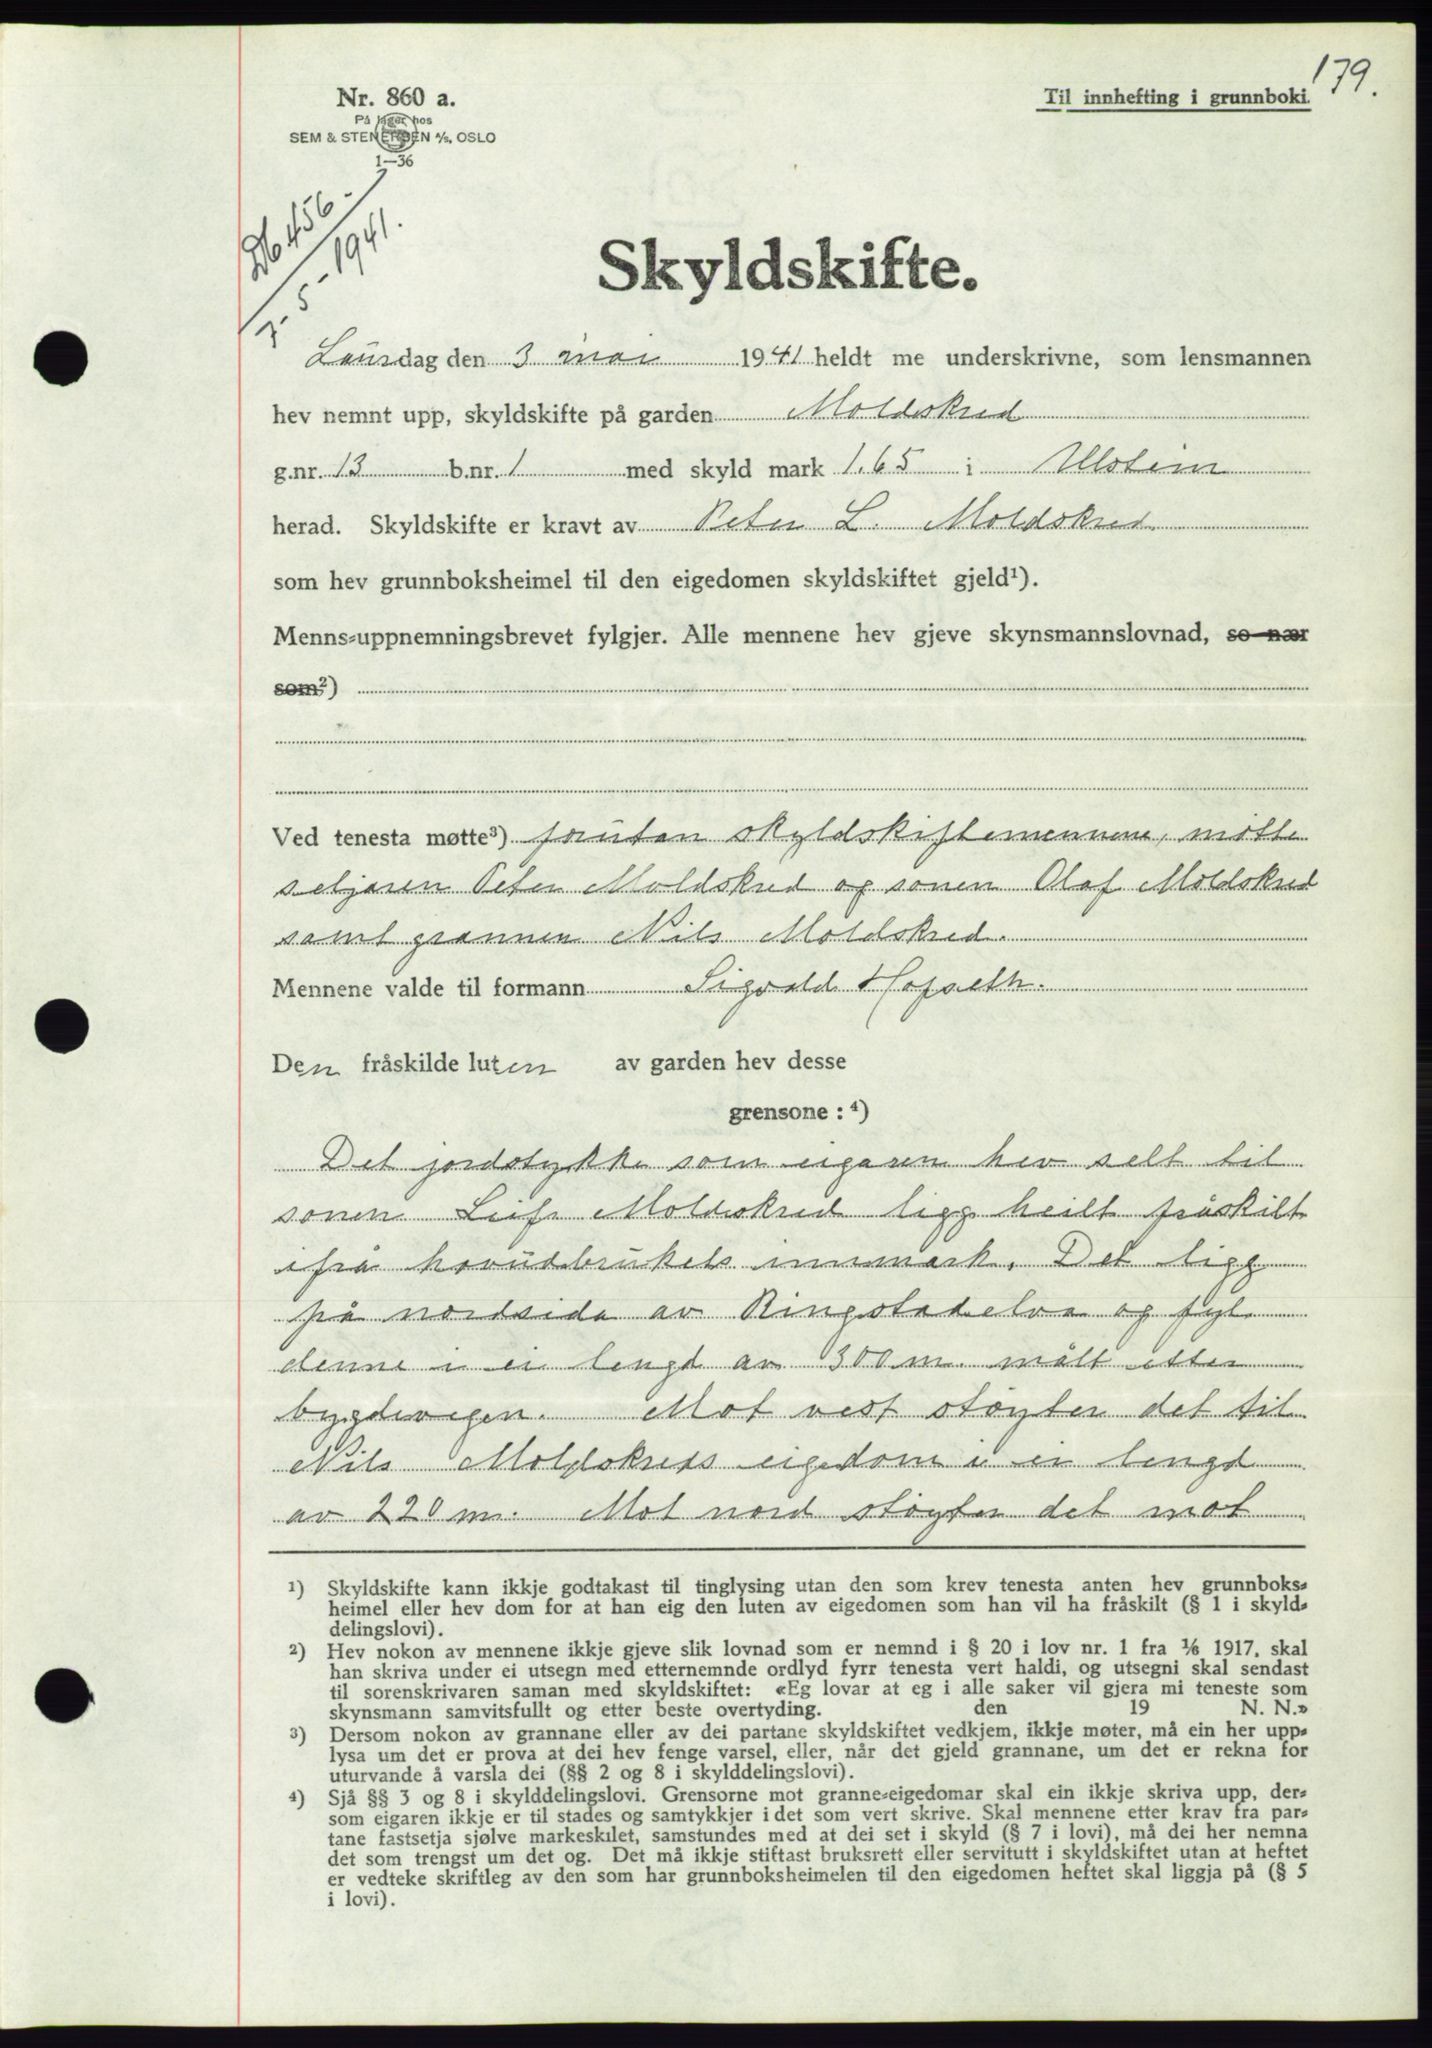 179.
Nr. 860 a.
Til innhefting i grunnboki.
På lager hos
SEM & STENERSEN A/S, OSLO
1—36
Db 456 -
7-5-1941.
Skyldskifte.
Laurdag den 3 mai 1941 heldt me underskrivne, som lensmannen
hev nemnt upp, skyldskifte på garden Moldskred
g.nr. 13 b.nr. 1 med skyld mark 1.65 i Ulstein
herad. Skyldskifte er kravt av Peter L. Moldskred
som hev grunnboksheimel til den eigedomen skyldskiftet gjeld¹).
Menns-uppnemningsbrevet fylgjer. Alle mennene hev gjeve skynsmannslovnad, so nær
som²)
Ved tenesta møtte³) forutan skyldskiftemennene, møtte
seljaren Peter Moldskred og sonen Olaf Moldskred
samt grannen Nils Moldskred.
Mennene valde til formann Sigvald Hofseth.
Den fråskilde luten av garden hev desse
grensone : ⁴)
Det jordstykke som eigaren hev selt til
sonen Leif Moldskred ligg heilt fråskilt
ifrå hovudbrukets innmark. Det ligg
på nordsida av Ringstadelva og fyl.
denne i ei lengd av 300 m. målt etter
bygdevegen. Mot vest støyter det til
Nils Moldskreds eigedom i ei lengd
av 220 m. Mot nord støyter det mot
¹) Skyldskifte kann ikkje godtakast til tinglysing utan den som krev tenesta anten hev grunnboks-
heimel eller hev dom for at han eig den luten av eigedomen som han vil ha fråskilt (§ 1 i skyld-
delingslovi).
²) Hev nokon av mennene ikkje gjeve slik lovnad som er nemnd i § 20 i lov nr. 1 fra 1/6 1917, skal
han skriva under ei utsegn med etternemnde ordlyd fyrr tenesta vert haldi, og utsegni skal sendast
til sorenskrivaren saman med skyldskiftet: «Eg lovar at eg i alle saker vil gjera mi teneste som
skynsmann samvitsfullt og etter beste overtyding. den 19 N. N.»
³) Dersom nokon av grannane eller av dei partane skyldskiftet vedkjem, ikkje møter, må ein her upp-
lysa um det er prova at dei hev fenge varsel, eller, når det gjeld grannane, um det er rekna for
uturvande å varsla dei (§§ 2 og 8 i skylddelingslovi).
⁴) Sjå §§ 3 og 8 i skylddelingslovi. Grensorne mot granne-eigedomar skal ein ikkje skriva upp, der-
som eigaren ikkje er til stades og samtykkjer i det som vert skrive. Skal mennene etter krav fra par-
tane fastsetja sjølve markeskilet, samstundes med at dei set i skyld (§ 7 i lovi), må dei her nemna
det som trengst um det og. Det må ikkje stiftast bruksrett eller servitutt i skyldskiftet utan at heftet
er vedteke skriftleg av den som har grunnboksheimelen til den eigedomen heftet skal liggja på (§ 5
i lovi).